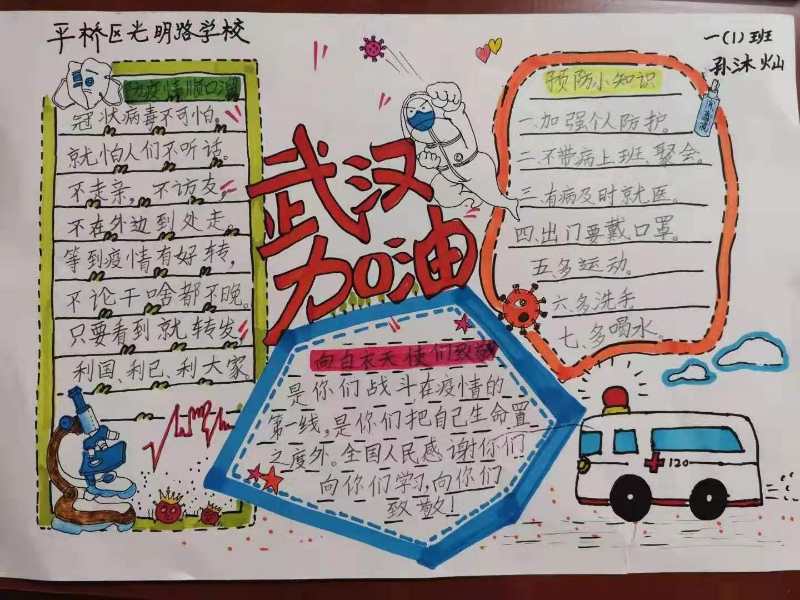 平桥区光明路学校
一(1)班
孙沐灿
防疫情顺口溜
冠状病毒不可怕。
就怕人们不听话。
不走亲，不访友，
不在外边到处走。
等到疫情有好转，
不论干啥都不晚。
只要看到就转发，
利国、利己、利大家
武汉
加油
预防小知识
一.加强个人防护。
二.不带病上班、聚会。
三.有病及时就医。
四.出门要戴口罩。
五.多运动。
六.多洗手
七.多喝水。
向白衣天使们致敬
是你们战斗在疫情的
第一线,是你们把自己生命置
之度外。全国人民感谢你们
向你们学习,向你们
致敬!
120